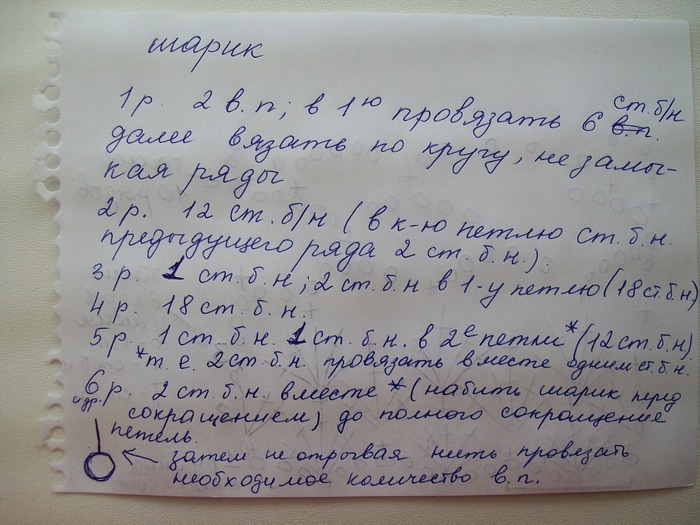 шарик
1 р. 2 в.п; в 1ю провязать 6 ст.б/н в.п.
далее вязать по кругу, не замы-
кая ряды
2 р. 12 ст. б/н (в к-ю петлю ст. б.н.
предыдущего ряда 2 ст. б.н.)
3 р. 1 ст. б.н; 2 ст. б.н в 1-у петлю (18 ст. б.н)
4 р. 18 ст. б.н.
5 р. 1 ст. б.н. 1 ст. б.н. в 2е петли* (12 ст. б.н)
*т.е. 2 ст. б.н. провязать вместе одним ст. б.н.
6 р. и др. 2 ст. б.н. вместе * (набить шарик перед
сокращением) до полного сокращение
петель.
затем не отрывая нить провязать
необходимое количество в.п.